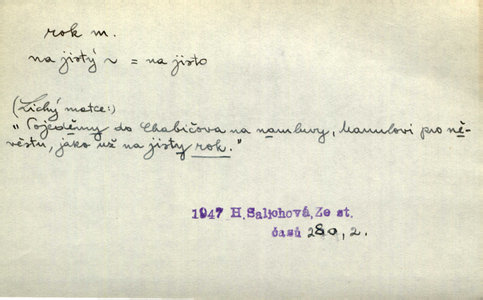 rok m.
na jistý ~ = na jisto
(Lichý matce:)
"Pojeděmy do Chabičova na namluvy, Hanulovi pro ně-
věstu, jako už na jisty rok."
1947 H. Salichová, Ze st.
časů 280, 2.